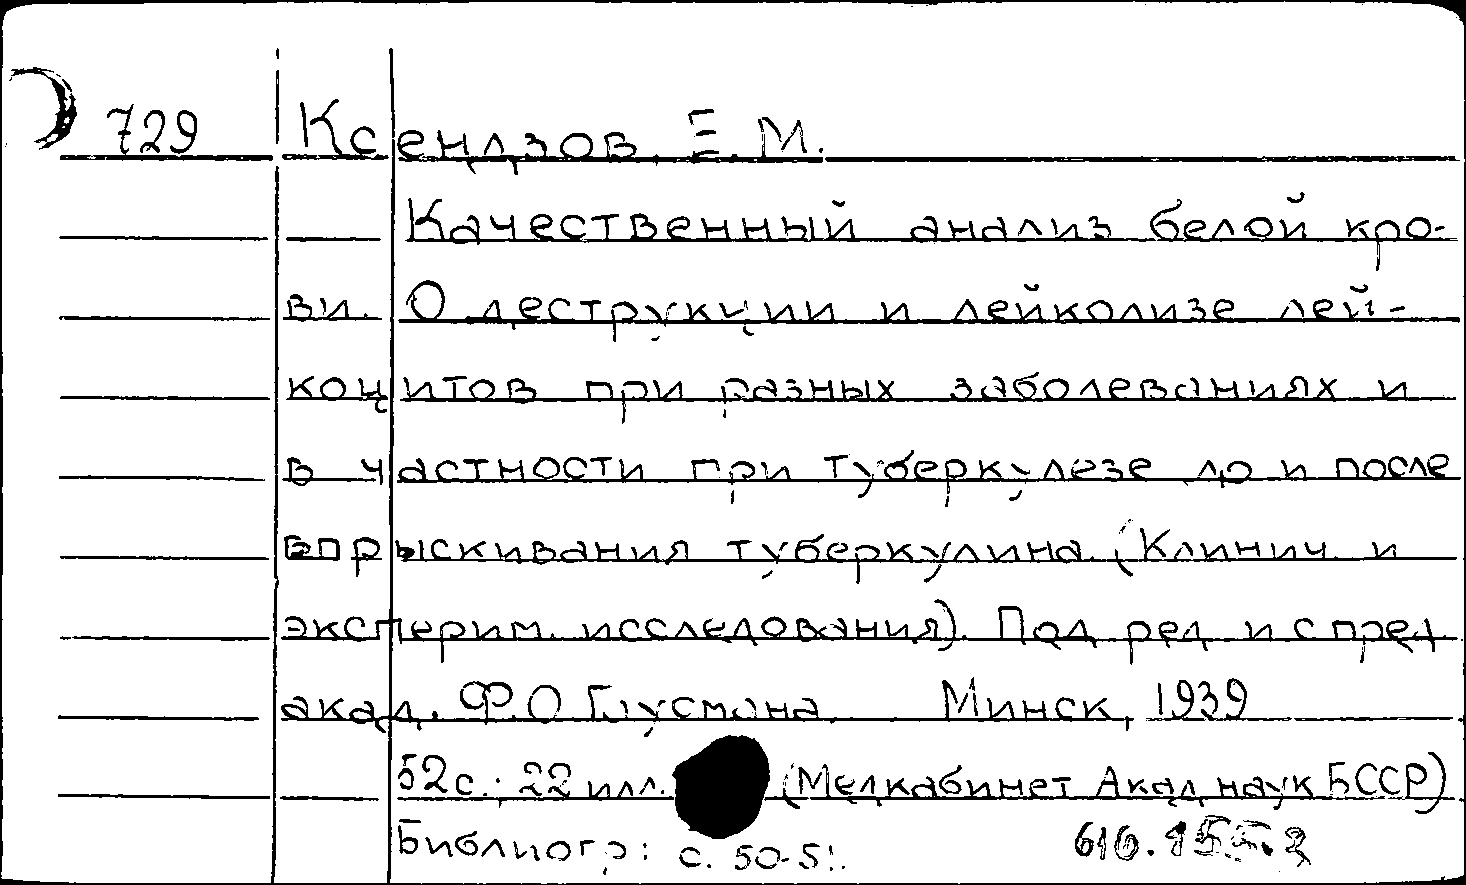 729 Ксендзов, Е. М.
Качественный анализ белой кро-
ви. О деструкции и лейколизе лей-
коцитов при разных заболеваниях и
в частности при туберкулезе до и после
впрыскивания туберкулина. (Клинич. и
эксперим. исследования). Под ред и с пред
акад. Ф.О Гаусмана. Минск, 1939
52 с.; 22 илл. (Медкабинет Акад наук БССР)
Библиогр: с. 50-51.